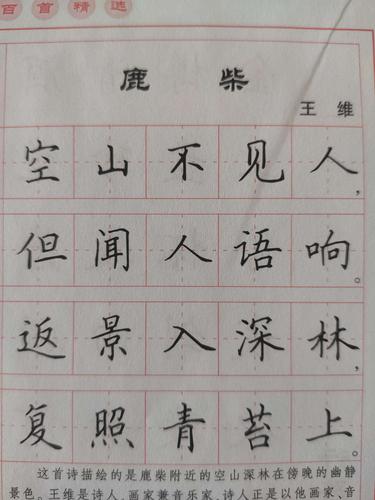 百首精选
鹿柴
王维
空山不见人，
但闻人语响。
返景入深林，
复照青苔上。
这首诗描绘的是鹿柴附近的空山深林在傍晚的幽静
景色。王维是诗人、画家兼音乐家，诗人正是以他画家、音